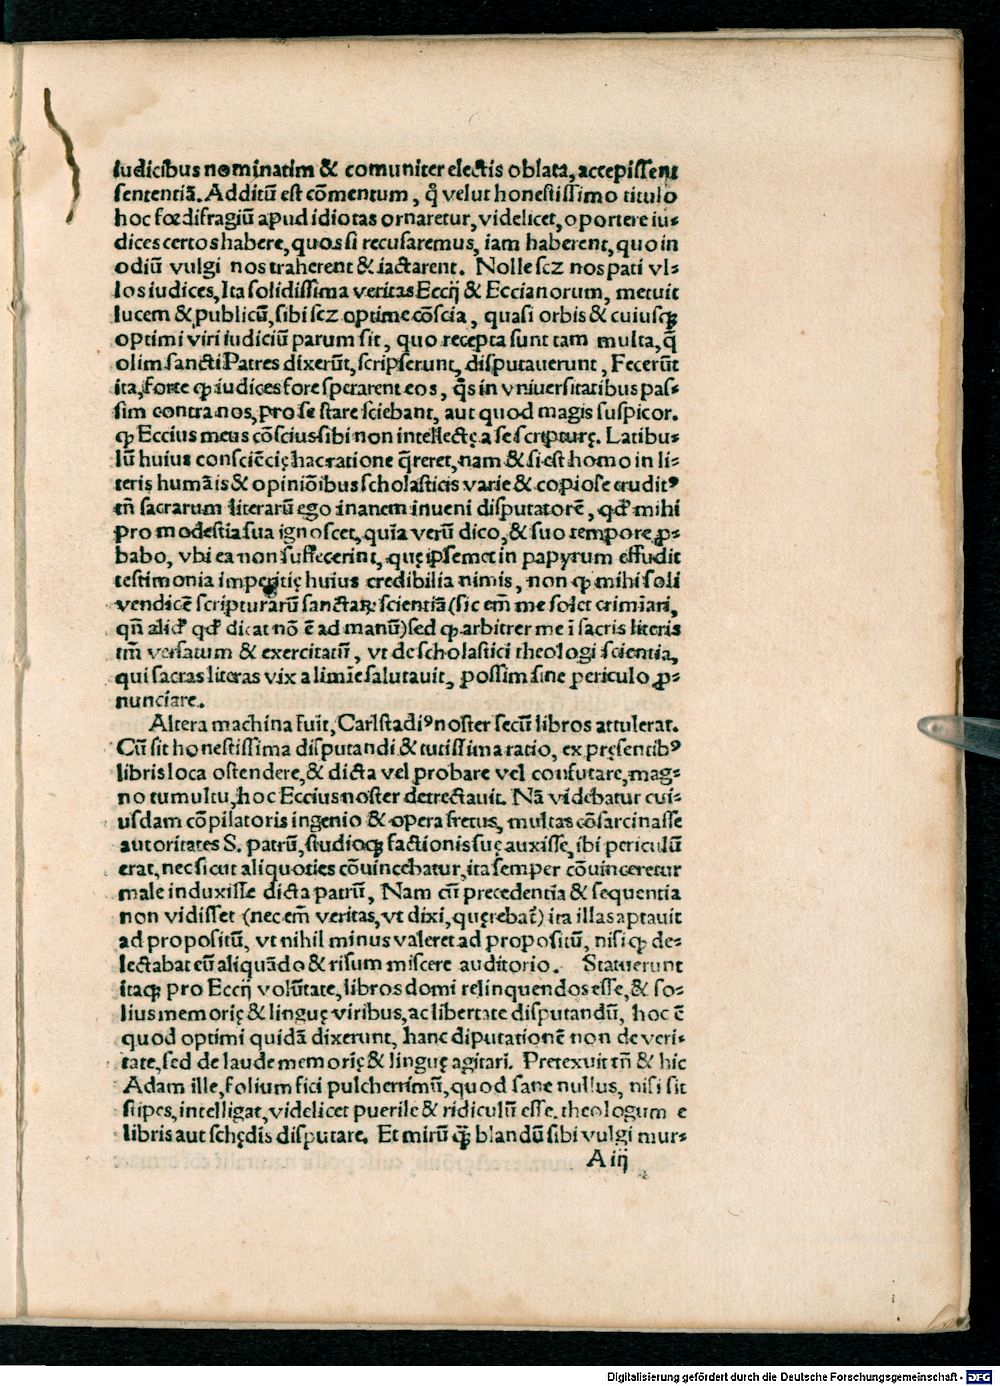 iudicibus nominatim & comuniter electis oblata, accepissent
sententiā. Additū est cōmentum, q̊ velut honestissimo titulo
hoc fœdifragiū apud idiotas ornaretur, videlicet, oportere iu⸗
dices certos habere, quos si recusaremus, iam haberent, quo in
odiū vulgi nos traherent & iactarent. Nolle scz nos pati vl⸗
los iudices, Ita solidissima veritas Eccij & Eccianorum, metuit
lucem & publicū, sibi scz optime cōscia, quasi orbis & cuiusqꝫ
optimi viri iudiciū parum sit, quo recepta sunt tam multa, q̄
olim sancti Patres dixerūt, scripserunt, disputauerunt, Fecerūt
ita, forte ꝙ iudices fore sperarent eos, q̄s in vniuersitatibus pas⸗
sim contra nos, pro se stare sciebant, aut quod magis suspicor.
ꝙ Eccius meus cōscius sibi non intellectę a se scripturę. Latibu⸗
lū huius consciēcię hac ratione q̄reret, nam & si est homo in li⸗
teris humāis & opiniōibus scholasticis varie & copiose eruditꝰ
tn̄ sacrarum literarū ego inanem inueni disputatorē, qd̓ mihi
pro modestia sua ignoscet, quia verū dico, & suo tempore ꝓ⸗
babo, vbi ea non suffecerint, quę ipsemet in papyrum effudit
testimonia imperitię huius credibilia nimis, non ꝙ mihi soli
vendicē scripturarū sanctaꝝ scientiā (sic em̄ me solet crimīari,
qn̄ alid̓ qd̓ dicat nō ē ad manū) sed ꝙ arbitrer me ī sacris literis
tm̄ versatum & exercitatū, vt de scholastici theologi scientia,
qui sacras literas vix a limīe salutauit, possim sine periculo ꝓ⸗
nunciare.
Altera machina fuit, Carlstadiꝰ noster secū libros attulerat.
Cū sit honestissima disputandi & tutissima ratio, ex pręsentibꝰ
libris loca ostendere, & dicta vel probare vel confutare, mag⸗
no tumultu, hoc Eccius noster detrectauit. Nā videbatur cui⸗
usdam cōpilatoris ingenio & opera fretus, multas cōsarcinasse
autoritates S. patrū, studioqꝫ factionis suę auxisse, ibi periculū
erat, nec sicut aliquoties cōuincebatur, ita semper cōuinceretur
male induxisse dicta patrū, Nam cū precedentia & sequentia
non vidisset (nec em̄ veritas, vt dixi, quęrebat̄) ita illas aptauit
ad propositū, vt nihil minus valeret ad propositū, nisi ꝙ de⸗
lectabat eū aliquādo & risum miscere auditorio. Statuerunt
itaqꝫ pro Eccij volūtate, libros domi relinquendos esse, & so⸗
lius memorię & linguę viribus, ac libertate disputandū, hoc ē
quod optimi quidā dixerunt, hanc diputationē non de veri⸗
tate, sed de laude memorię & linguę agitari. Pretexuit tn̄ & hic
Adam ille, folium fici pulcherrimū, quod sane nullus, nisi sit
stipes, intelligat, videlicet puerile & ridiculū esse. theologum e
libris aut schędis disputare. Et mirū qꝫ̄ blandū sibi vulgi mur⸗
A iij
Digitalisierung gefördert durch die Deutsche Forschungsgemeinschaft - DFG